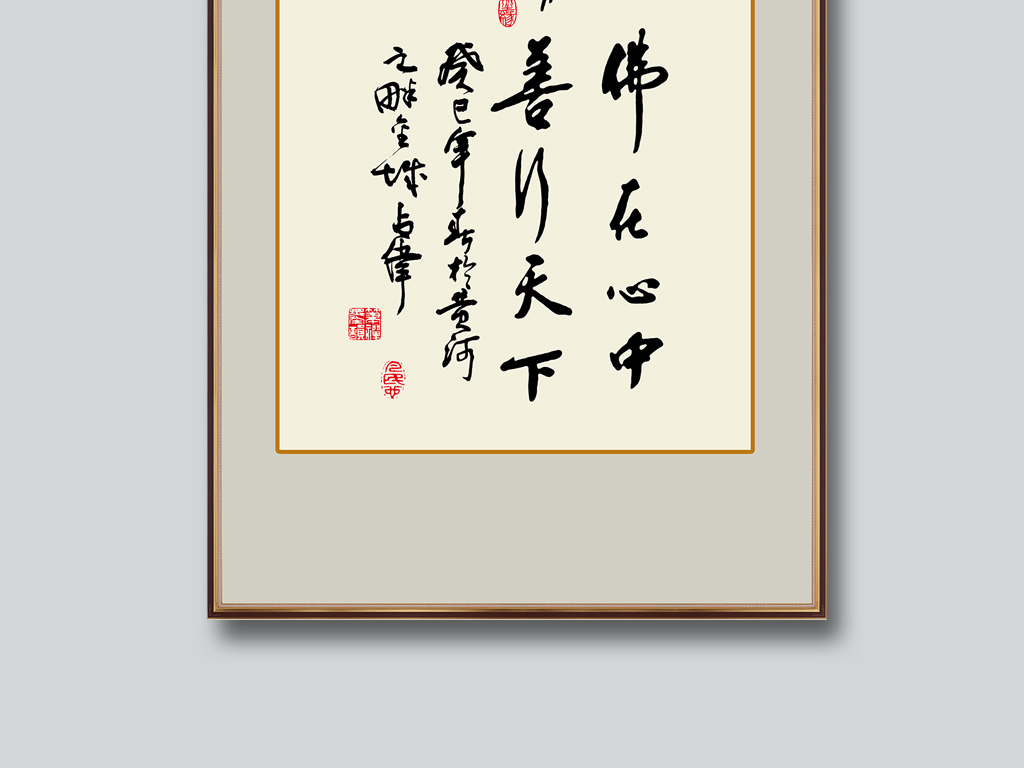 佛在心中
善行天下
癸巳年春於黄河
之畔金城占偉